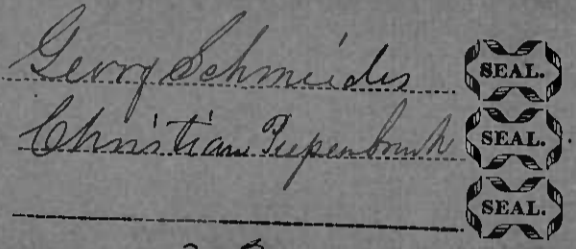 Georg Schmeider SEAL.
Christian Piepenbrink SEAL.
SEAL.